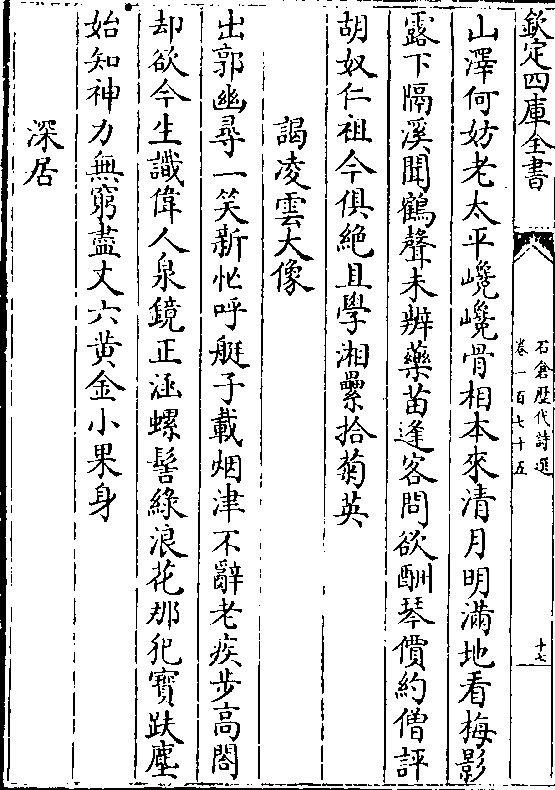 欽定四庫全書
石倉歷代詩選
卷一百七十五
十七
山澤何妨老太平巉巉骨相本來清月明滿地看梅影
露下隔溪聞鶴聲未辦藥苗逢客問欲酬琴價約僧評
胡奴仁祖今俱絶且學湘纍拾菊英
謁凌雲大像
出郭幽尋一笑新忙呼艇子載烟津不辭老疾步高閣
却欲今生識偉人泉鏡正涵螺髻綠浪花那犯寶趺塵
始知神力無窮盡丈六黄金小果身
深居